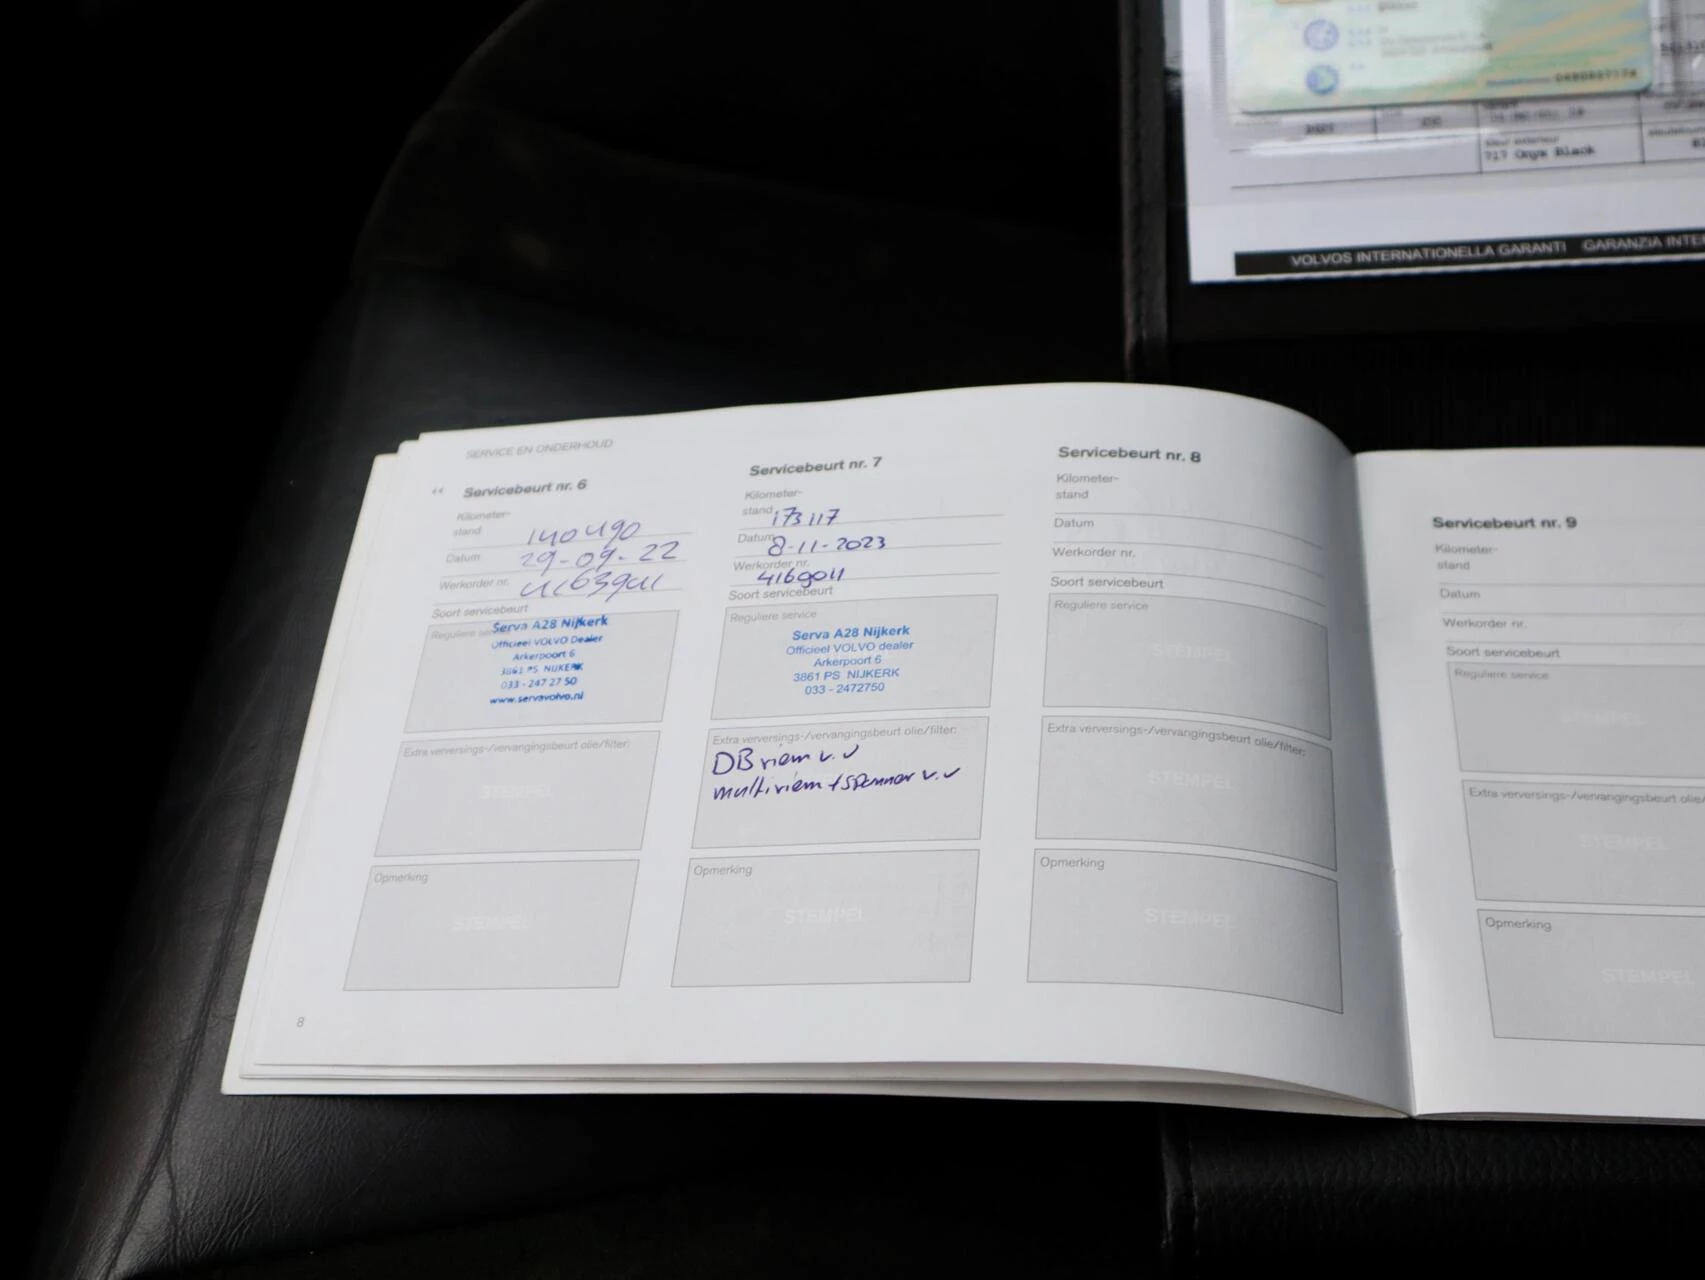 0480807174
717 Onyx Black
VOLVOS INTERNATIONELLA GARANTI GARANZIA INTE
SERVICE EN ONDERHOUD
Servicebeurt nr. 6
Kilometer-
stand 140490
Datum 29-09-22
Werkorder nr.
Soort servicebeurt
Reguliere
Serva A28 Nijkerk
Officieel VOLVO Dealer
Arkerpoort 6
3861 PS NIJKERK
033 - 247 27 50
www.servavolvo.nl
Extra verversings-/vervangingsbeurt olie/filter:
STEMPEL
Opmerking
STEMPEL
8
Servicebeurt nr. 7
Kilometer-
stand 173117
Datum 8-11-2023
Werkorder nr. 4169011
Soort servicebeurt
Reguliere service
Serva A28 Nijkerk
Officieel VOLVO dealer
Arkerpoort 6
3861 PS NIJKERK
033 - 2472750
Extra verversings-/vervangingsbeurt olie/filter:
DB riem v.v
multiriem + spanner v.v
Opmerking
STEMPEL
Servicebeurt nr. 8
Kilometer-
stand
Datum
Werkorder nr.
Soort servicebeurt
Reguliere service
STEMPEL
Extra verversings-/vervangingsbeurt olie/filter:
STEMPEL
Opmerking
STEMPEL
Servicebeurt nr. 9
Kilometer-
stand
Datum
Werkorder nr.
Soort servicebeurt
Reguliere service
STEMPEL
Extra verversings-/vervangingsbeurt olie/
STEMPEL
Opmerking
STEMPEL